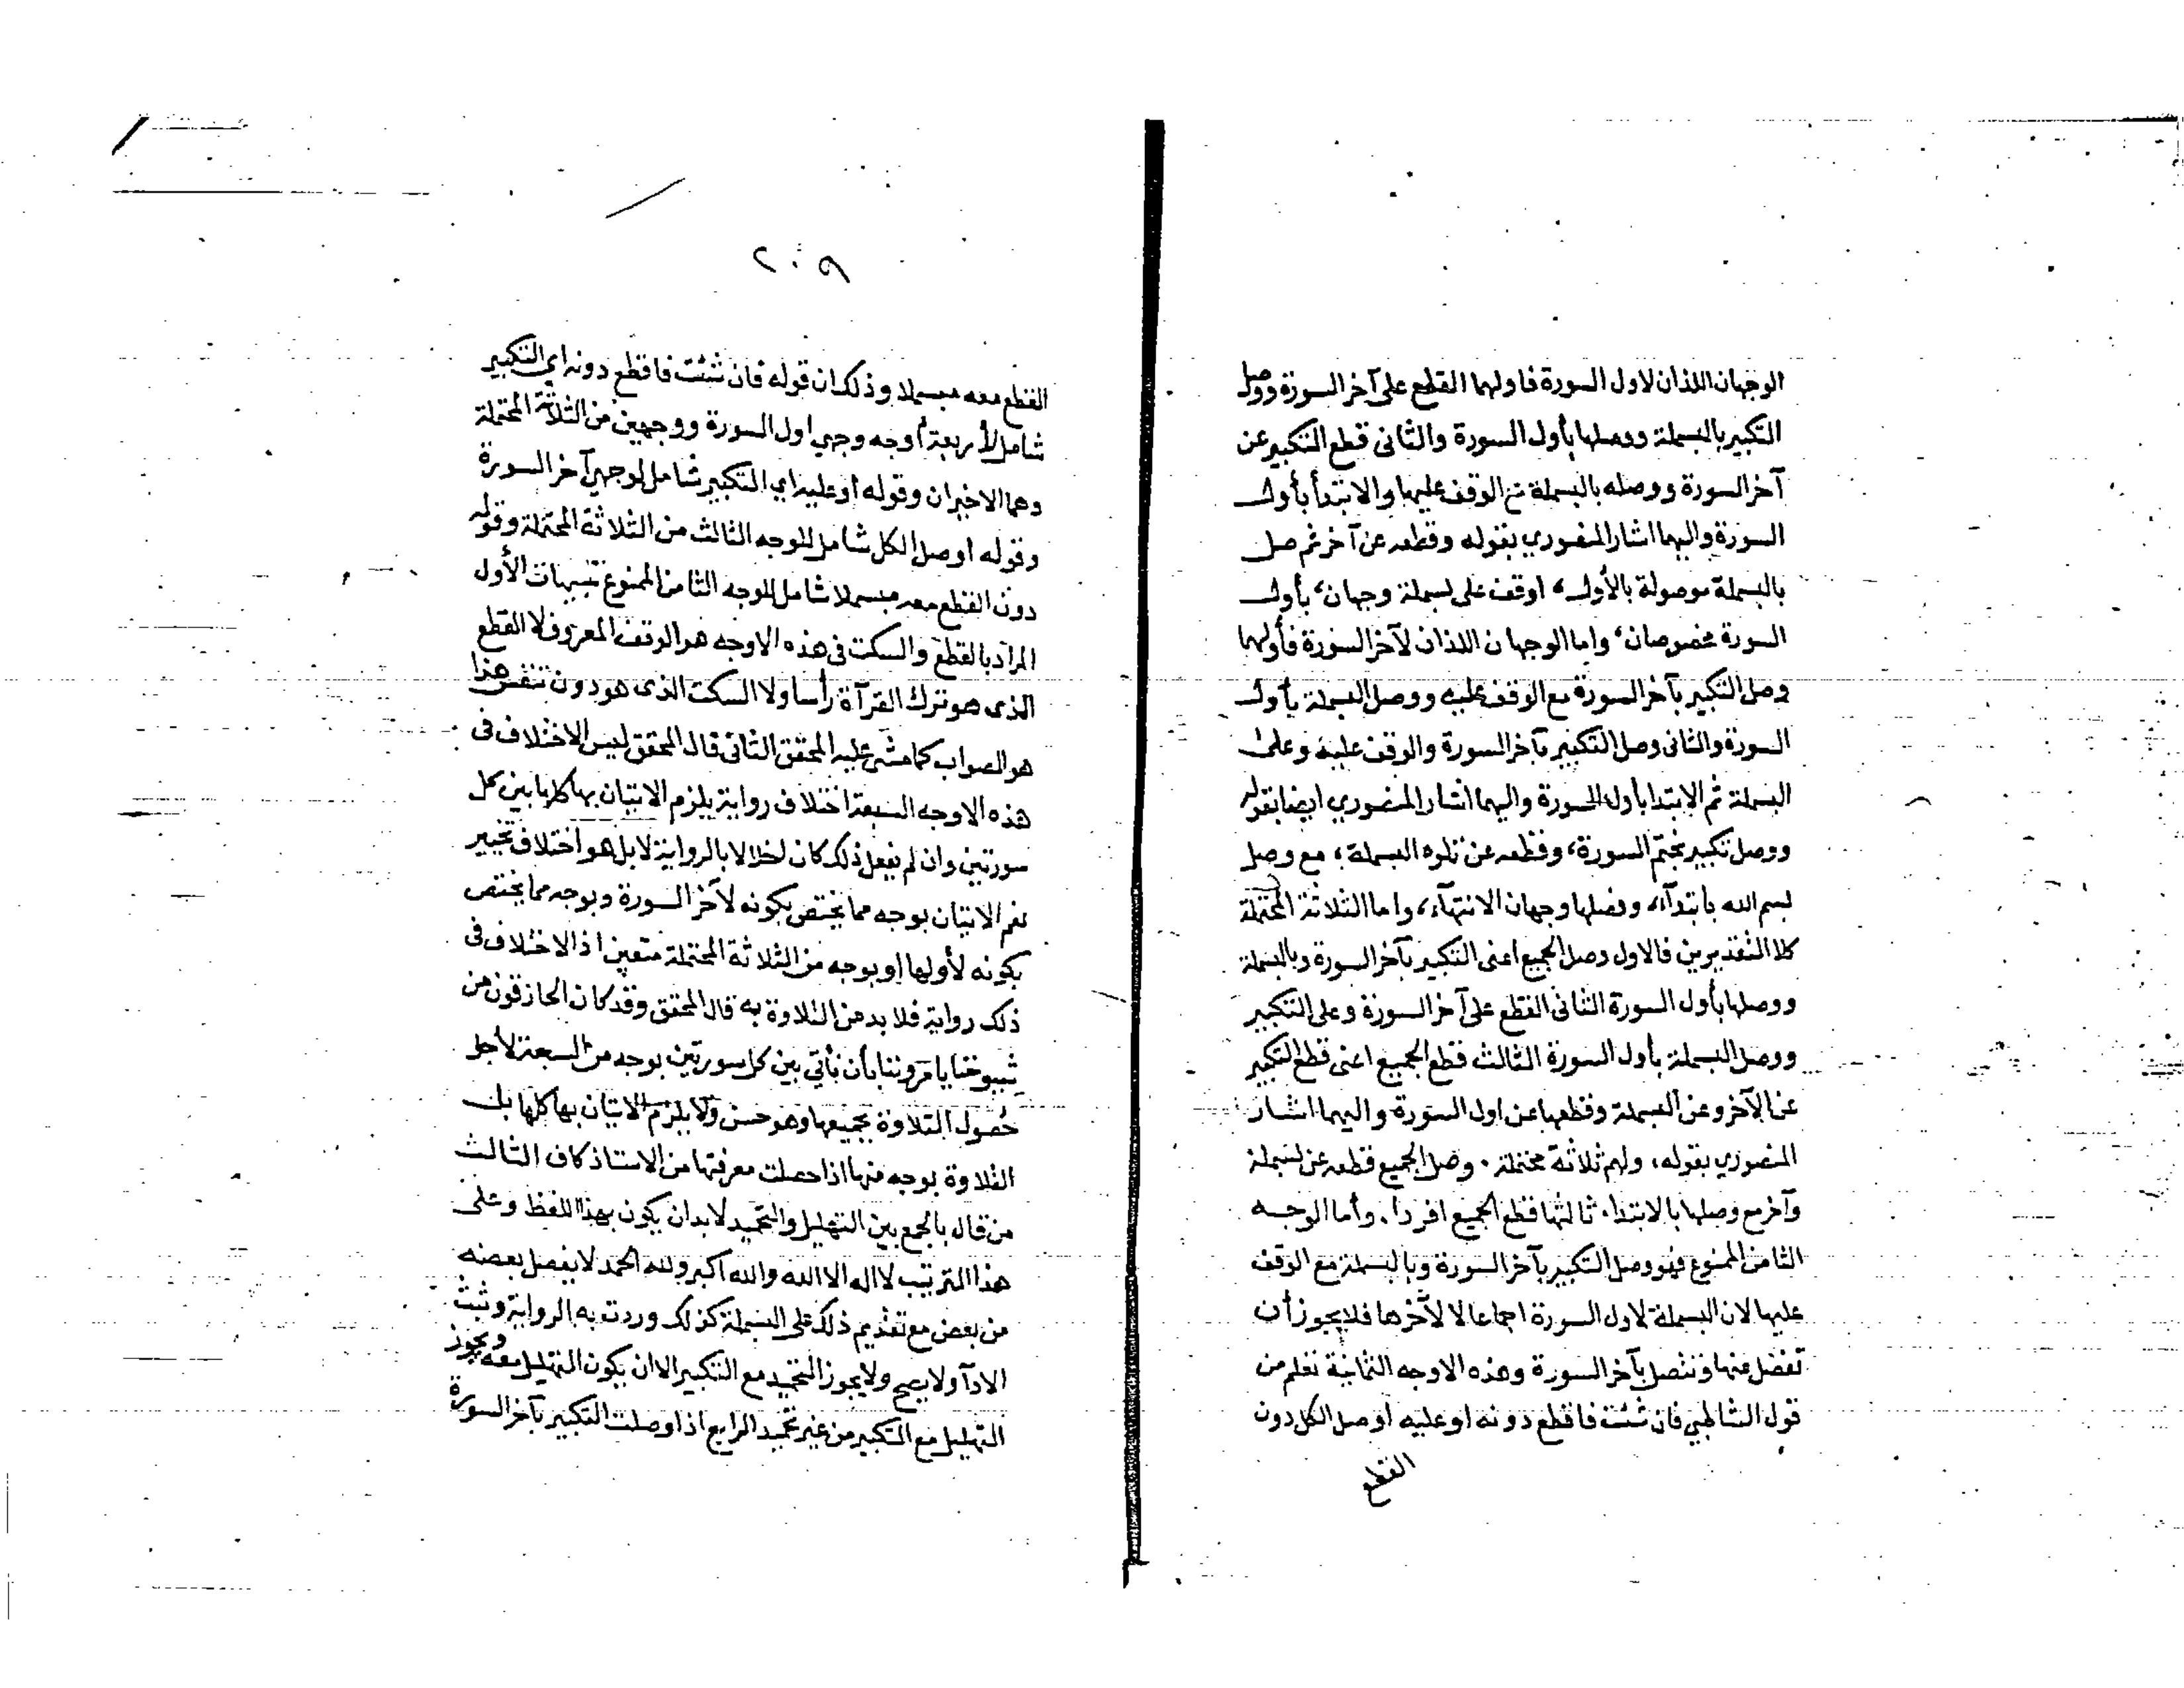 الوجهان اللذان لاول السورة فاولهما القطع على آخر السورة ووصل
التكبير بالبسملة ووصلها بأول السورة والثانى قطع التكبير عن
آخر السورة ووصله بالبسملة مع الوقف عليها والابتدأ بأول
السورة واليهما اشار المنصوري بقوله وقطعه عن آخر ثم صل
بالبسملة موصولة بالأول، اوقف على بسملة وجهان، بأول
السورة مخصوصان، واما الوجهان اللذان لآخر السورة فأولهما
وصل التكبير بآخر السورة مع الوقف عليه ووصل البسملة بأول
السورة والثانى وصل التكبير بآخر السورة والوقف عليه وعلى
البسملة ثم الابتدا بأول السورة واليهما اشار المنصوري ايضا بقوله
ووصل تكبير بختم السورة، وقطعه عن تلوه البسملة، مع وصل
بسم الله بابتدآء، وفصلها وجهان الانتهآء، واما الثلاثة المحتملة
كلا التقديرين فالاول وصل الجميع اعنى التكبير بآخر السورة وبالبسملة
ووصلها بأول السورة الثانى القطع على آخر السورة وعلى التكبير
ووصل البسملة بأول السورة الثالث قطع الجميع اعنى قطع التكبير
عن الآخر وعن البسملة وقطعها عن اول السورة واليهما اشار
المنصوري بقوله، ولهم ثلاثة محتملة، وصل الجميع قطعه عن بسملة
وآخر مع وصلها بالابتدا، ثالثها قطع الجميع افردا، وأما الوجه
الثامن الممنوع فهو وصل التكبير بآخر السورة وبالبسملة مع الوقف
عليها لان البسملة لاول السورة اجماعا لا لآخرها فلا يجوز أن
تفصل عنها وتتصل بآخر السورة وهذه الاوجه الثمانية تعلم من
قول الشاطبي فان شئت فاقطع دونه او عليه او صل الكل دون
القطع
٢٠٩
القطع معه مبسملا وذلك ان قوله فان شئت فاقطع دونه اي التكبير
شامل لأربعة أوجه وجهي اول السورة ووجهين من الثلاثة المحتملة
وهما الاخيران وقوله او عليه اي التكبير شامل لوجهي آخر السورة
وقوله او صل الكل شامل للوجه الثالث من الثلاثة المحتملة وقوله
دون القطع معه مبسملا شامل للوجه الثامن الممنوع تنبيهات الأول
المراد بالقطع والسكت فى هذه الاوجه هو الوقف المعروف لا القطع
الذى هو ترك القرآة رأسا ولا السكت الذى هو دون تنفس هذا
هو الصواب كما مشى عليه المحقق الثانى قال المحقق ليس الاختلاف فى
هذه الاوجه السبعة اختلاف رواية يلزم الاتيان بها كلها بين كل
سورتين وان لم يفعل ذلك كان اخلالا بالرواية لا بل هو اختلاف تخيير
نعم الاتيان بوجه مما يختص بكونه لآخر السورة وبوجه مما يختص
بكونه لأولها او بوجه من الثلاثة المحتملة متعين اذ الاختلاف فى
ذلك رواية فلا بد من التلاوة به قال المحقق وقد كان الحاذقون من
شيوخنا يامروننا بأن نأتي بين كل سورتين بوجه من السبعة لأجل
حصول التلاوة بجميعها وهو حسن ولا يلزم الاتيان بها كلها بل
التلاوة بوجه منها اذا حصلت معرفتها من الاستاذ كاف الثالث
من قال بالجمع بين التهليل والتحميد لا بد ان يكون بهذا اللفظ وعلى
هذا الترتيب لا اله الا الله والله اكبر ولله الحمد لا يفصل بعضه
من بعض مع تقديم ذلك على البسملة كذلك وردت به الرواية وثبت
الادآ ولا يصح ولا يجوز التحميد مع التكبير الا ان يكون التهليل معه ويجوز
التهليل مع التكبير من غير تحميد الرابع اذا وصلت التكبير بآخر السورة